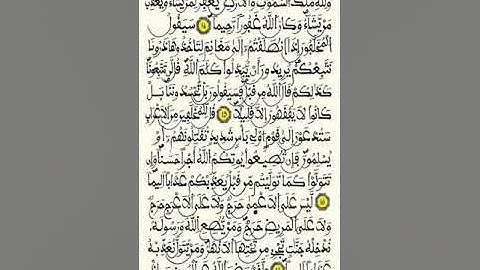 وَلِلهِ مُلْكُ السَّمَٰوَٰتِ وَالَارْضِ يَغْفِرُ لِمَنْ يَّشَآءُ وَيُعَذِّبُ
مَنْ يَّشَآءُ وَكَانَ اَللَّهُ غَفُورًا رَّحِيمًا ١٤ سَيَقُولُ
اُ۬لْمُخَلَّفُونَ إِذَا اَنطَلَقْتُمُۥٓ إِلَىٰ مَغَانِمَ لِتَاخُذُوهَا ذَرُونَا
نَتَّبِعْكُمْ يُرِيدُونَ أَنْ يُّبَدِّلُوا كَلَٰمَ اَللَّهِ قُل لَّن تَتَّبِعُونَا
كَذَٰلِكُمْ قَالَ اَللَّهُ مِن قَبْلُ فَسَيَقُولُونَ بَلْ تَحْسُدُونَنَا بَلْ
كَانُوا لَا يَفْقَهُونَ إِلَّا قَلِيلًا ١٥ قُل لِّلْمُخَلَّفِينَ مِنَ اَلَاعْرَابِ
سَتُدْعَوْنَ إِلَىٰ قَوْمٍ اُوْلِے بَأْسٍ شَدِيدٍ تُقَٰتِلُونَهُمُۥٓ أَوْ
يُسْلِمُونَ فَإِن تُطِيعُوا يُوتِكُمُ اُللَّهُ أَجْرًا حَسَنًا وَإِن
تَتَوَلَّوْا كَمَا تَوَلَّيْتُم مِّن قَبْلُ يُعَذِّبْكُمْ عَذَابًا اَلِيمًا
١٦ لَّيْسَ عَلَى اَلَاعْمَىٰ حَرَجٌ وَلَا عَلَى اَلَاعْرَجِ حَرَجٌ
وَلَا عَلَى اَلْمَرِيضِ حَرَجٌ وَمَنْ يُّطِعِ اِللَّهَ وَرَسُولَهُۥ
نُدْخِلْهُ جَنَّٰتٍ تَجْرِے مِن تَحْتِهَا اَلَانْهَٰرُ وَمَنْ يَّتَوَلَّ نُعَذِّبْهُ